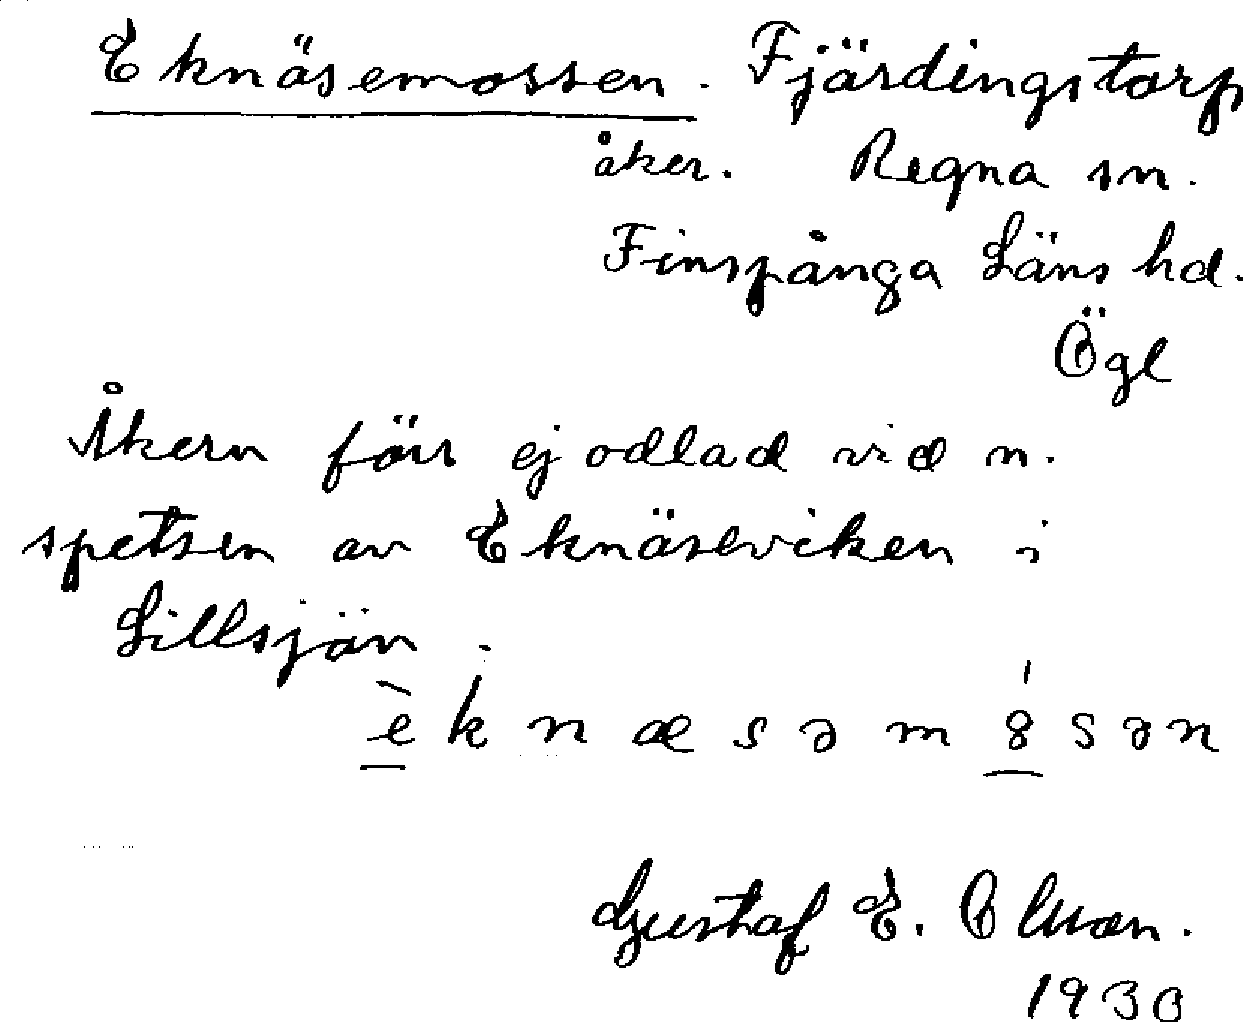 Eknäsemossen. Fjärdingstorp
åker. Regna sn.
Finspånga Läns hd.
Ögl
Åkern förr ej odlad vid n.
spetsen av Eknäseviken i
Lillsjön.
èknæsəm8́sən
Gustaf E. Olsson.
1930